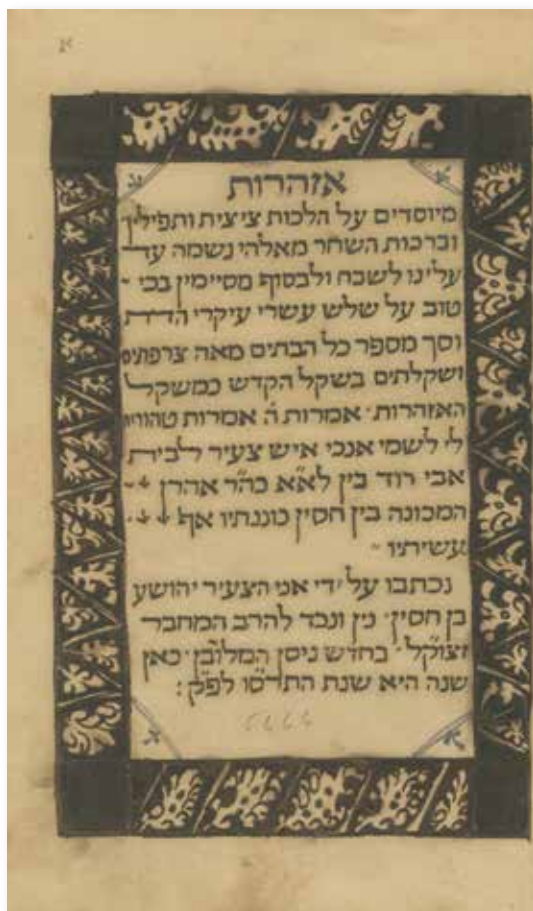 א
אזהרות
מיוסדים על הלכות ציצית ותפילין
וברכות השחר מאלהי נשמה עד
עלינו לשבח ולבסוף מסיימין בכי
טוב על שלש עשרי עיקרי הדת
וסך מספר כל הבתים מאה צרפתים
ושקלתים בשקל הקדש כמשקל
האזהרות אמרות ה' אמרות טהורות
לי לשמי אנכי איש צעיר לבית
אבי דוד בין לא"א כה"ר אהרן
המכונה בין חסין כוננתיו אף
עשיתיו
נכתבו על ידי אני הצעיר יהושע
בן חסין נין ונכד להרב המחבר
זצוק"ל בחדש ניסן
שנה היא שנת לפ"ק: